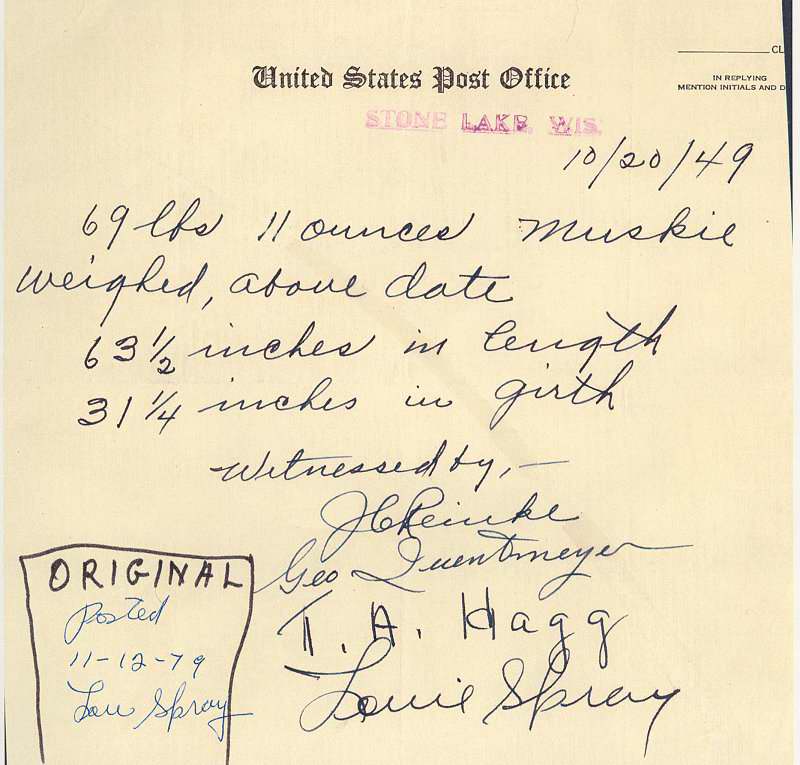 CL
United States Post Office
IN REPLYING
MENTION INITIALS AND D
STONE LAKE, WIS.
10/20/49
69 lbs 11 ounces Muskie
weighed, above date
63 1/2 inches in length
31 1/4 inches in girth
Witnessed by, -
J C Reinke
Geo Quentmeyer
T. A. Hagg
Louie Spray
ORIGINAL
Posted
11-12-79
Lou Spray